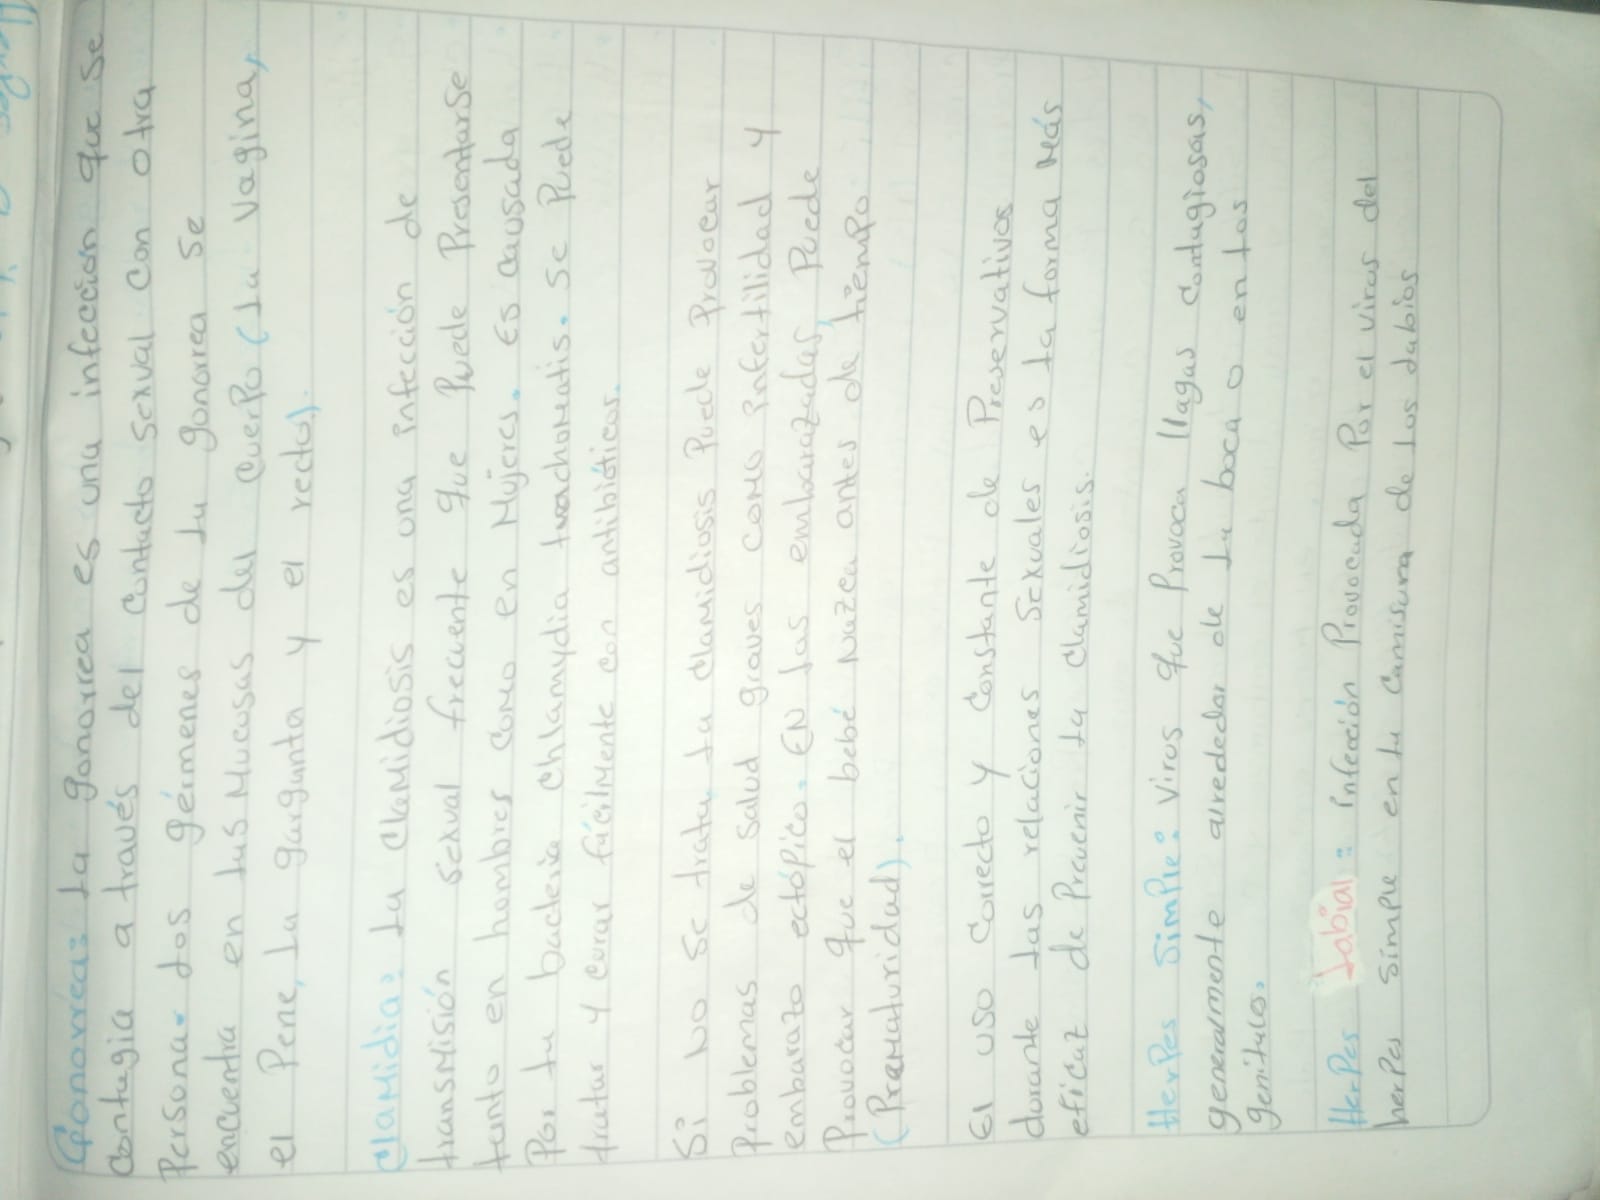 Gonorrea: La gonorrea es una infección que se
contagia a través del contacto sexual con otra
Persona. Los gérmenes de la gonorrea se
encuentra en las Mucosas del cuerpo (La vagina,
el Pene, La garganta y el recto).
Clamidia: La clamidiosis es una infección de
transmisión sexual frecuente que Puede Presentarse
tanto en hombres como en Mujeres. Es causada
Por la bacteria chlamydia trachomatis. Se Puede
tratar y curar fácilmente con antibióticos.
Si no se trata, La clamidiosis Puede Provocar
Problemas de salud graves como infertilidad y
embarazo ectópico. En Las embarazadas, Puede
Provocar que el bebé nazca antes de tiempo
(Prematuridad).
El uso correcto y constante de Preservativos
durante Las relaciones sexuales es La forma Más
eficaz de Prevenir La clamidiosis.
Herpes Simple: Virus que Provoca llagas contagiosas,
generalmente alrededor de La boca o en Los
genitales.
Herpes Labial: infección Provocada Por el virus del
herpes simple en La Camisura de Los Labios